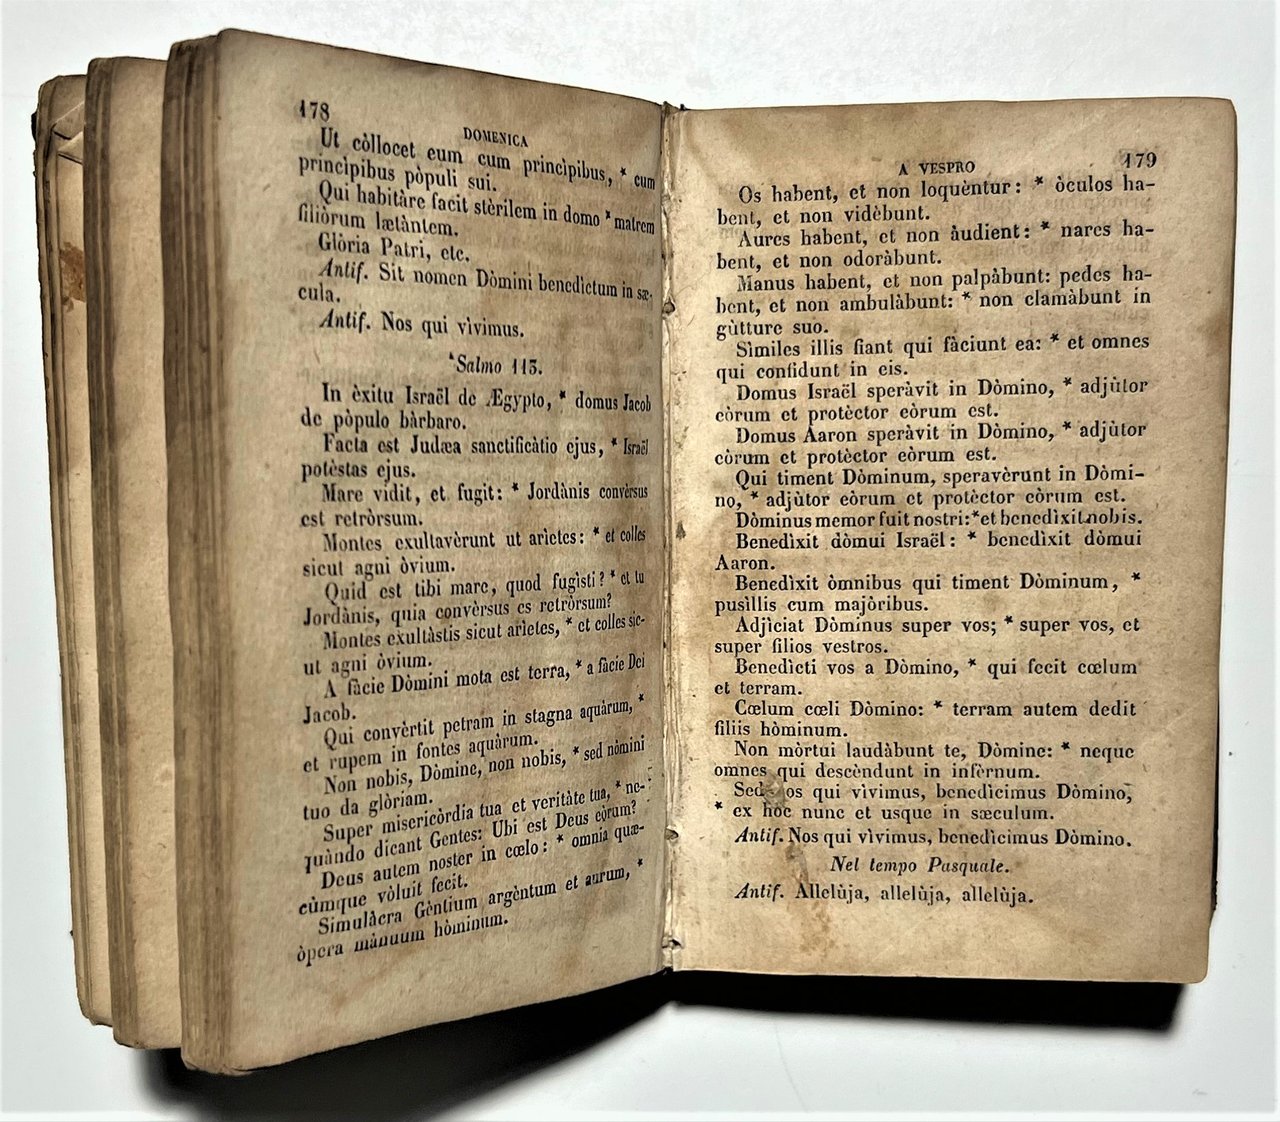 178
DOMENICA
Ut còllocet eum cum princìpibus, * cum
princìpibus pòpuli sui.
Qui habitàre facit stèrilem in domo * matrem
filiòrum lætàntem.
Glòria Patri, etc.
Antif. Sit nomen Dòmini benedìctum in sæ-
cula.
Antif. Nos qui vìvimus.
Salmo 113.
In èxitu Israël de Ægypto, * domus Jacob
de pòpulo bàrbaro.
Facta est Judæa sanctificàtio ejus, * Israël
potèstas ejus.
Mare vidit, et fugit: * Jordànis convèrsus
est retròrsum.
Montes exultavèrunt ut arìetes: * et colles
sicut agni òvium.
Quid est tibi mare, quod fugìsti? * et tu
Jordànis, quia convèrsus es retròrsum?
Montes exultàstis sicut arìetes, * et colles sic-
ut agni òvium.
A fàcie Dòmini mota est terra, * a fàcie Dei
Jacob.
Qui convèrtit petram in stagna aquàrum, *
et rupem in fontes aquàrum.
Non nobis, Dòmine, non nobis, * sed nòmini
tuo da glòriam.
Super misericòrdia tua et veritàte tua, * ne-
quàndo dicant Gentes: Ubi est Deus eòrum?
Deus autem noster in cœlo: * omnia quæ-
cùmque vòluit fecit.
Simulàcra Gèntium argèntum et aurum, *
òpera mànuum hòminum.
A VESPRO
179
Os habent, et non loquèntur: * òculos ha-
bent, et non vidèbunt.
Aures habent, et non àudient: * nares ha-
bent, et non odoràbunt.
Manus habent, et non palpàbunt: pedes ha-
bent, et non ambulàbunt: * non clamàbunt in
gùtture suo.
Sìmiles illis fiant qui fàciunt ea: * et omnes
qui confidunt in eis.
Domus Israël speràvit in Dòmino, * adjùtor
eòrum et protèctor eòrum est.
Domus Aaron speràvit in Dòmino, * adjùtor
eòrum et protèctor eòrum est.
Qui timent Dòminum, speravèrunt in Dòmi-
no, * adjùtor eòrum et protèctor eòrum est.
Dòminus memor fuit nostri: * et benedìxit nobis.
Benedìxit dòmui Israël: * benedìxit dòmui
Aaron.
Benedìxit òmnibus qui timent Dòminum, *
pusìllis cum majòribus.
Adjìciat Dòminus super vos; * super vos, et
super fìlios vestros.
Benedìcti vos a Dòmino, * qui fecit cœlum
et terram.
Cœlum cœli Dòmino: * terram autem dedit
fìliis hòminum.
Non mòrtui laudàbunt te, Dòmine: * neque
omnes qui descèndunt in infèrnum.
Sed nos qui vìvimus, benedìcimus Dòmino,
* ex hoc nunc et usque in sæculum.
Antif. Nos qui vìvimus, benedìcimus Dòmino.
Nel tempo Pasquale.
Antif. Allelùja, allelùja, allelùja.